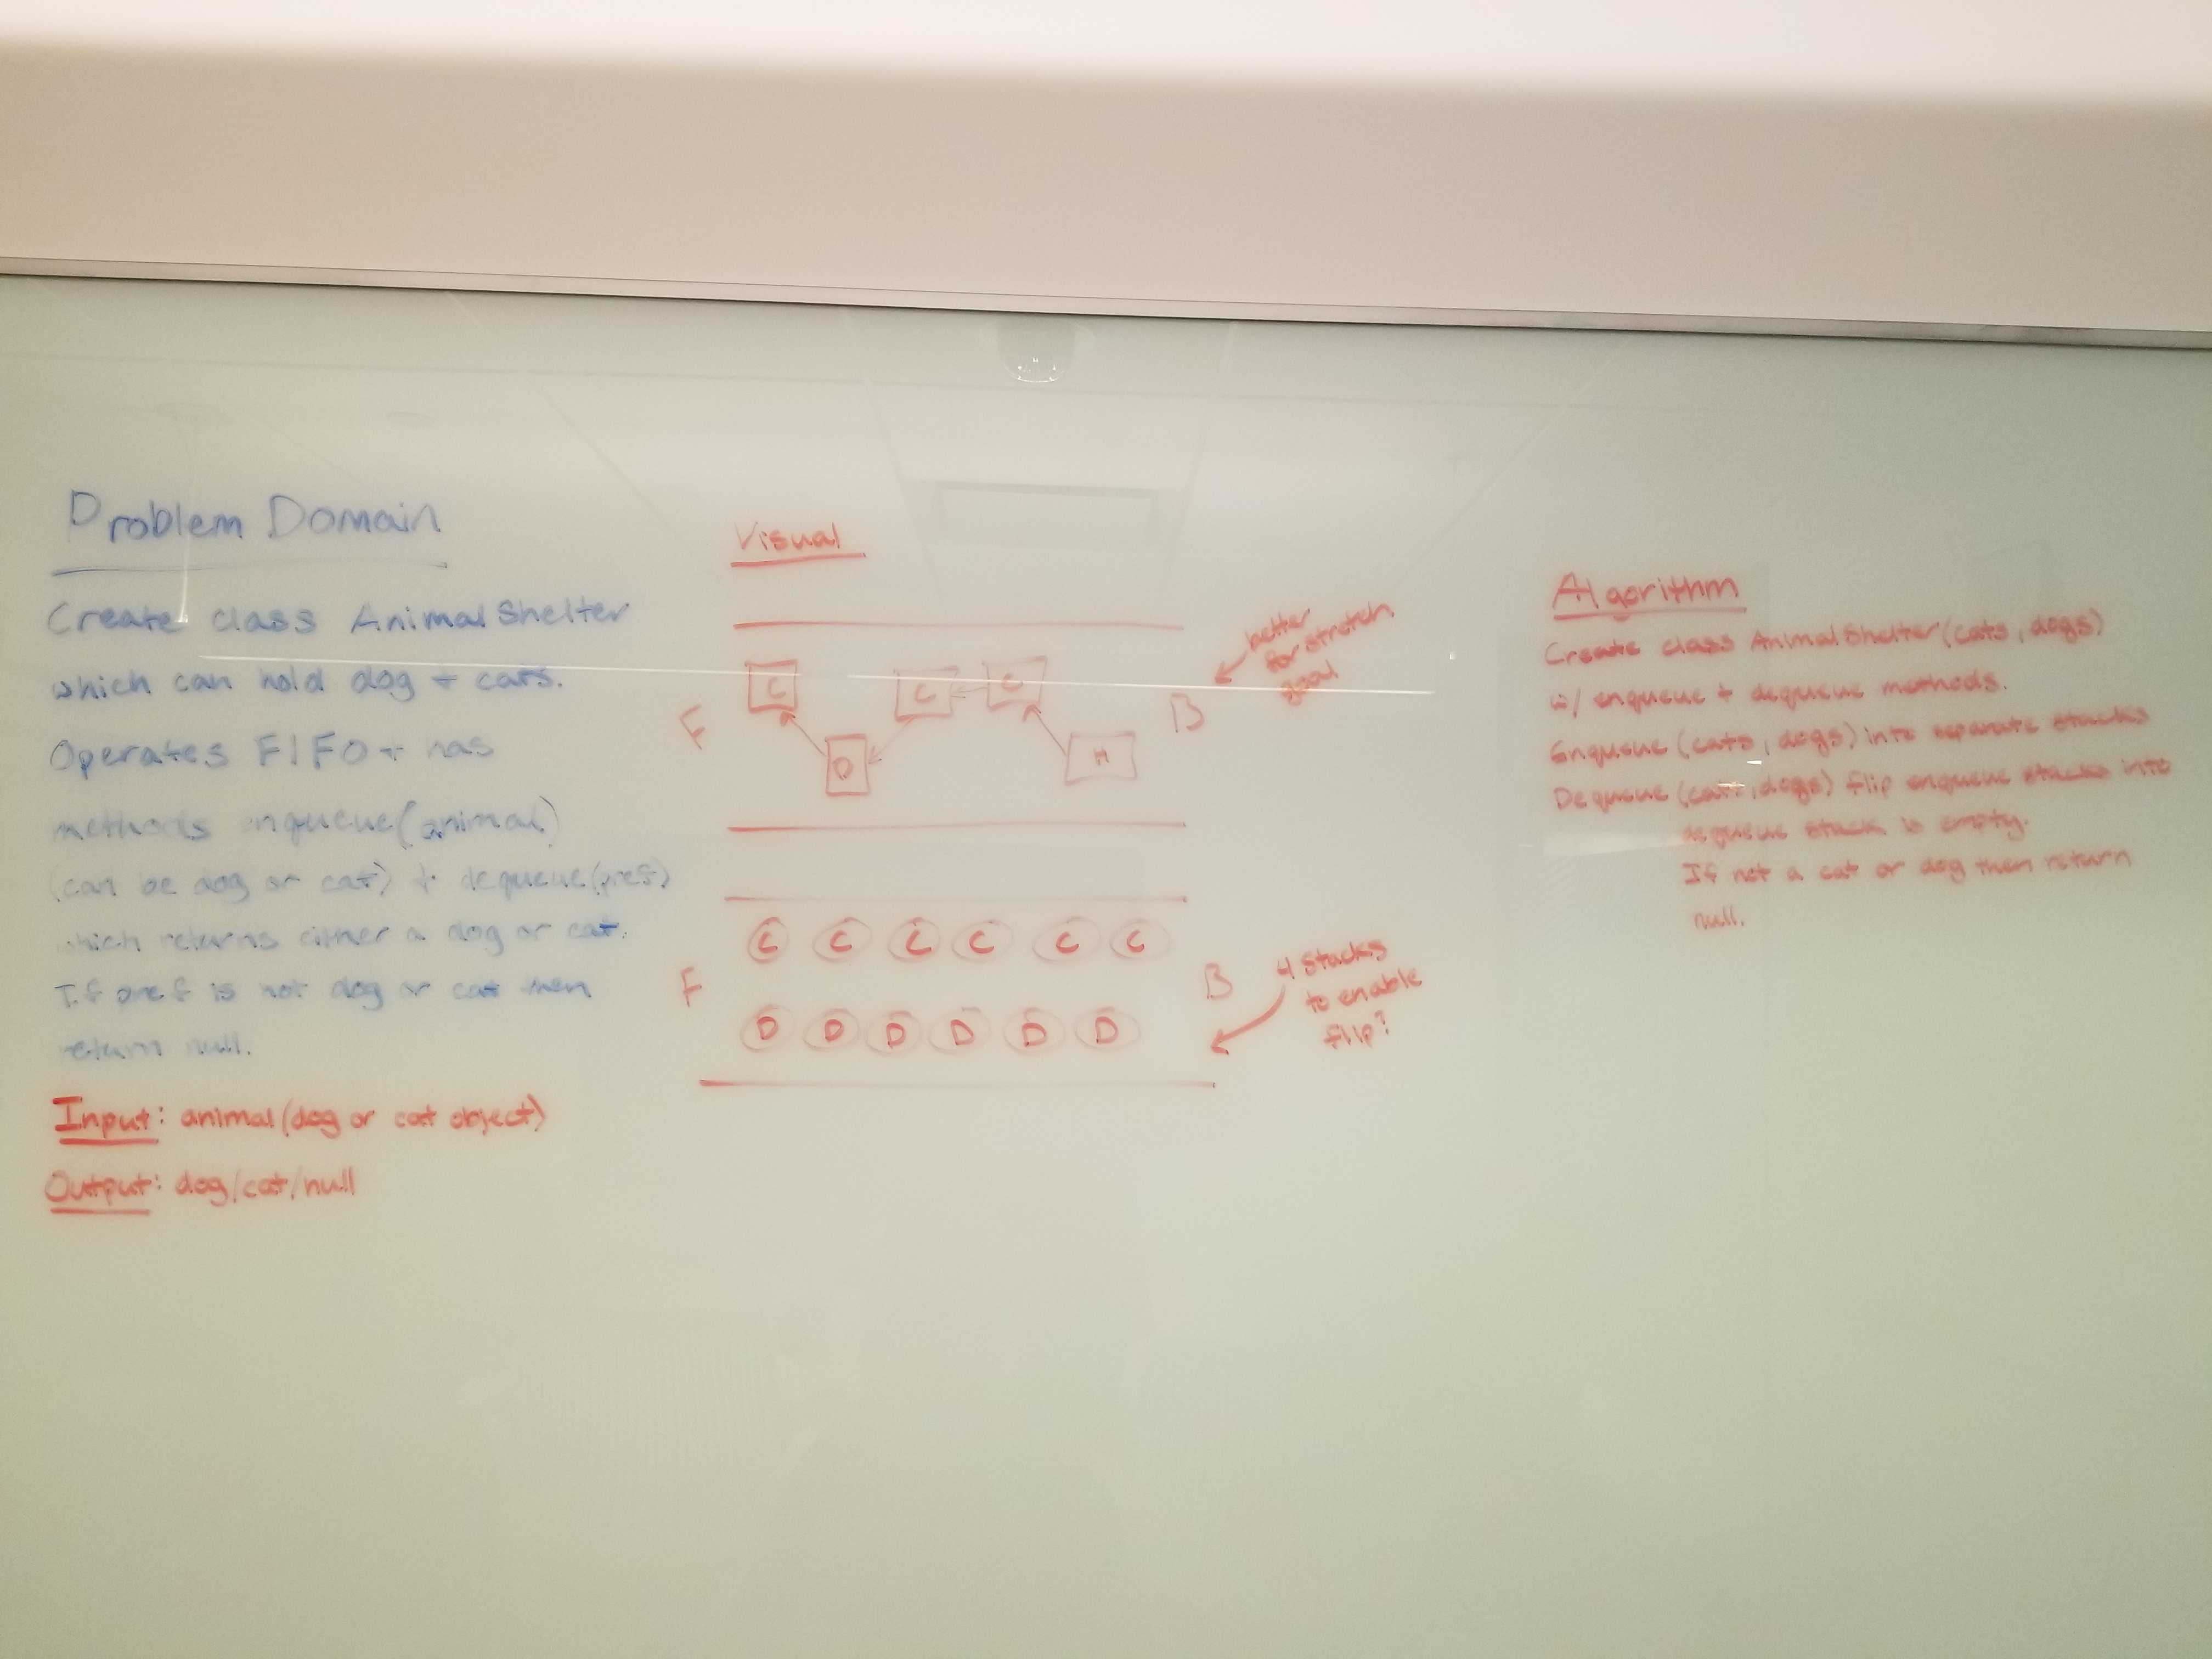 Problem Domain
Create class AnimalShelter
which can hold dog + cats.
Operates FIFO + has
methods enqueue(animal)
(can be dog or cat) + dequeue(pref)
which returns either a dog or cat.
If pref is not dog or cat then
return null.
Input: animal (dog or cat object)
Output: dog/cat/null
Visual
C C C
F B
D H
better
for stretch
goal
C C C C C C
F B
D D D D D D
4 stacks
to enable
flip?
Algorithm
Create class AnimalShelter(cats, dogs)
w/ enqueue + dequeue methods.
Enqueue (cats, dogs) into separate stacks
Dequeue (cats, dogs) flip enqueue stacks into
dequeue stack is empty.
If not a cat or dog then return
null.